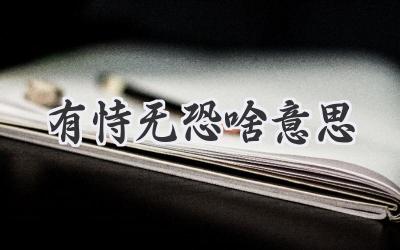 有恃无恐啥意思